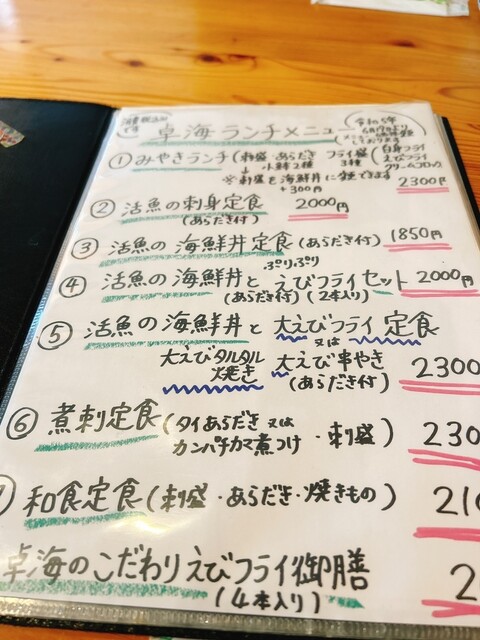 消費税込み です
卓海ランチメニュー
令和5年
①みやきランチ(刺盛・あらだき フライ盛(白身フライ
↓ 小鉢2種 3種 えびフライ
クリームコロッケ
※刺盛を海鮮丼に変更できます
+300円 2300円
②活魚の刺身定食 2000円
(あらだき付)
③活魚の海鮮丼定食(あらだき付) 1850円
ぷりぷり
④活魚の海鮮丼とえびフライセット 2000円
(あらだき付)(2本入り)
⑤活魚の海鮮丼と大えびフライ定食
又は
大えびタルタル焼き 大えび串やき 2300
(あらだき付)
⑥煮刺定食(タイあらだき又は
カンパチカマ煮つけ・刺盛) 230
和食定食(刺盛・あらだき・焼きもの) 21
卓海のこだわりえびフライ御膳 2
(4本入り)